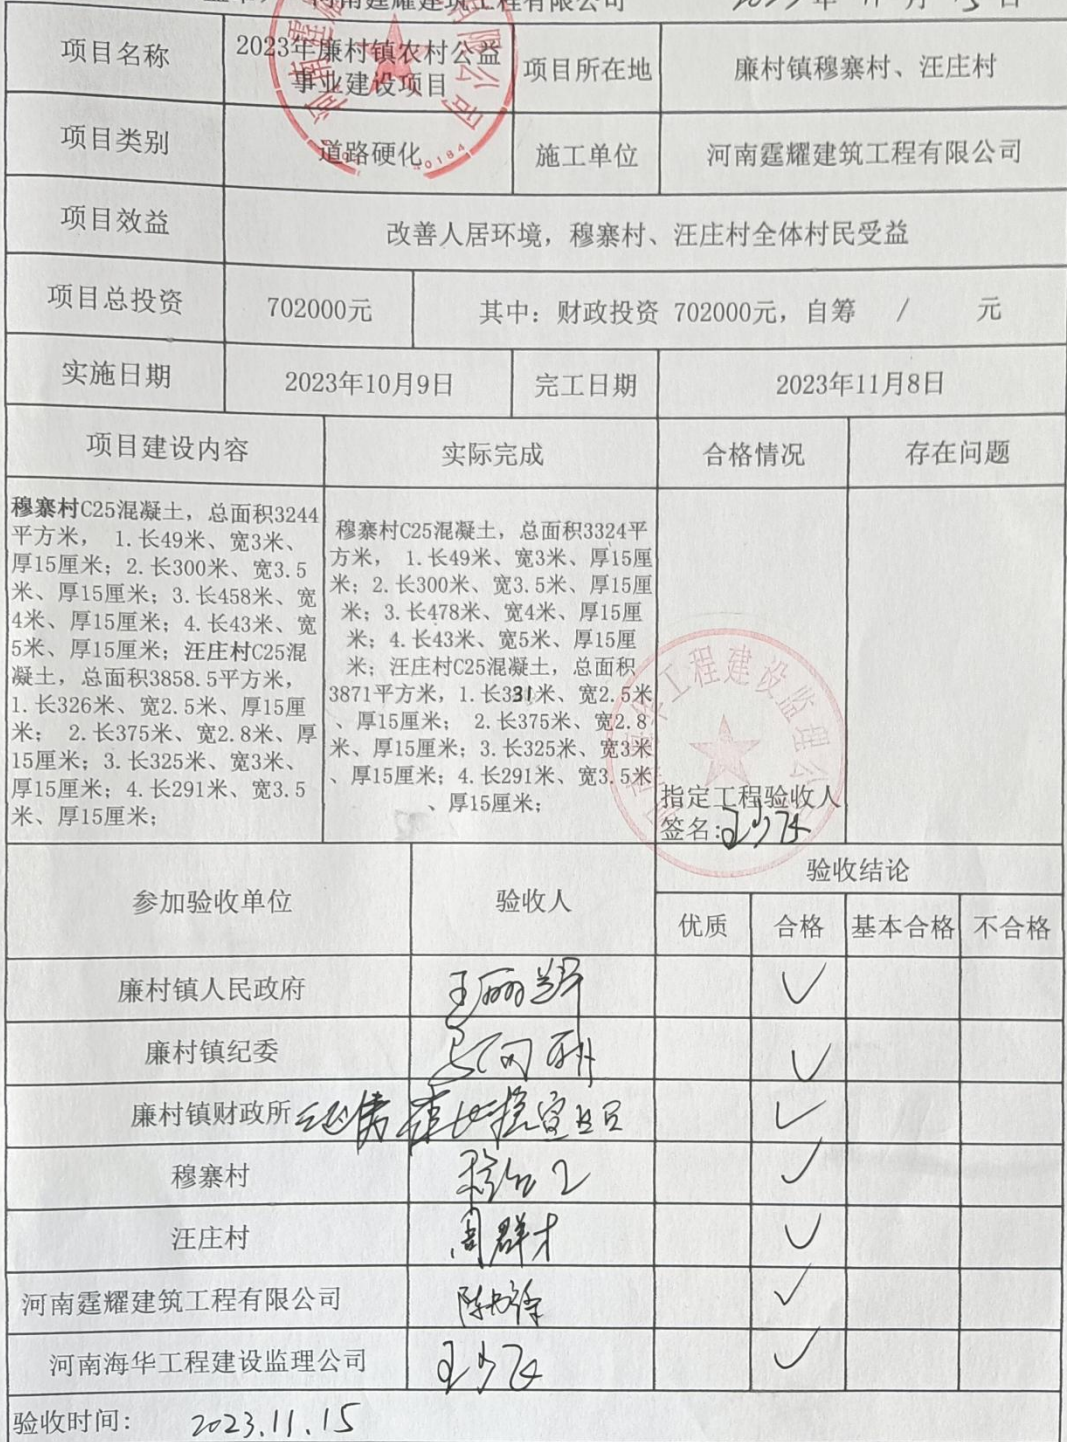 河南霆耀建筑工程有限公司 2023年11月15日
项目名称 2023年廉村镇农村公益事业建设项目 项目所在地 廉村镇穆寨村、汪庄村
项目类别 道路硬化 施工单位 河南霆耀建筑工程有限公司
项目效益 改善人居环境，穆寨村、汪庄村全体村民受益
项目总投资 702000元 其中：财政投资 702000元，自筹 / 元
实施日期 2023年10月9日 完工日期 2023年11月8日
项目建设内容 实际完成 合格情况 存在问题
穆寨村C25混凝土，总面积3244
平方米， 1.长49米、宽3米、
厚15厘米；2.长300米、宽3.5
米、厚15厘米；3.长458米、宽
4米、厚15厘米；4.长43米、宽
5米、厚15厘米；汪庄村C25混
凝土，总面积3858.5平方米，
1.长326米、宽2.5米、厚15厘
米； 2.长375米、宽2.8米、厚
15厘米；3.长325米、宽3米、
厚15厘米；4.长291米、宽3.5
米、厚15厘米；
穆寨村C25混凝土，总面积3324平
方米， 1.长49米、宽3米、厚15厘
米；2.长300米、宽3.5米、厚15厘
米；3.长478米、宽4米、厚15厘
米；4.长43米、宽5米、厚15厘
米；汪庄村C25混凝土，总面积
3871平方米，1.长331米、宽2.5米
、厚15厘米； 2.长375米、宽2.8
米、厚15厘米；3.长325米、宽3米
、厚15厘米；4.长291米、宽3.5米
、厚15厘米；
工程建设监理公
指定工程验收人
签名：
参加验收单位 验收人 验收结论
优质 合格 基本合格 不合格
廉村镇人民政府
廉村镇纪委
廉村镇财政所
穆寨村
汪庄村 周群才
河南霆耀建筑工程有限公司
河南海华工程建设监理公司
验收时间： 2023.11.15